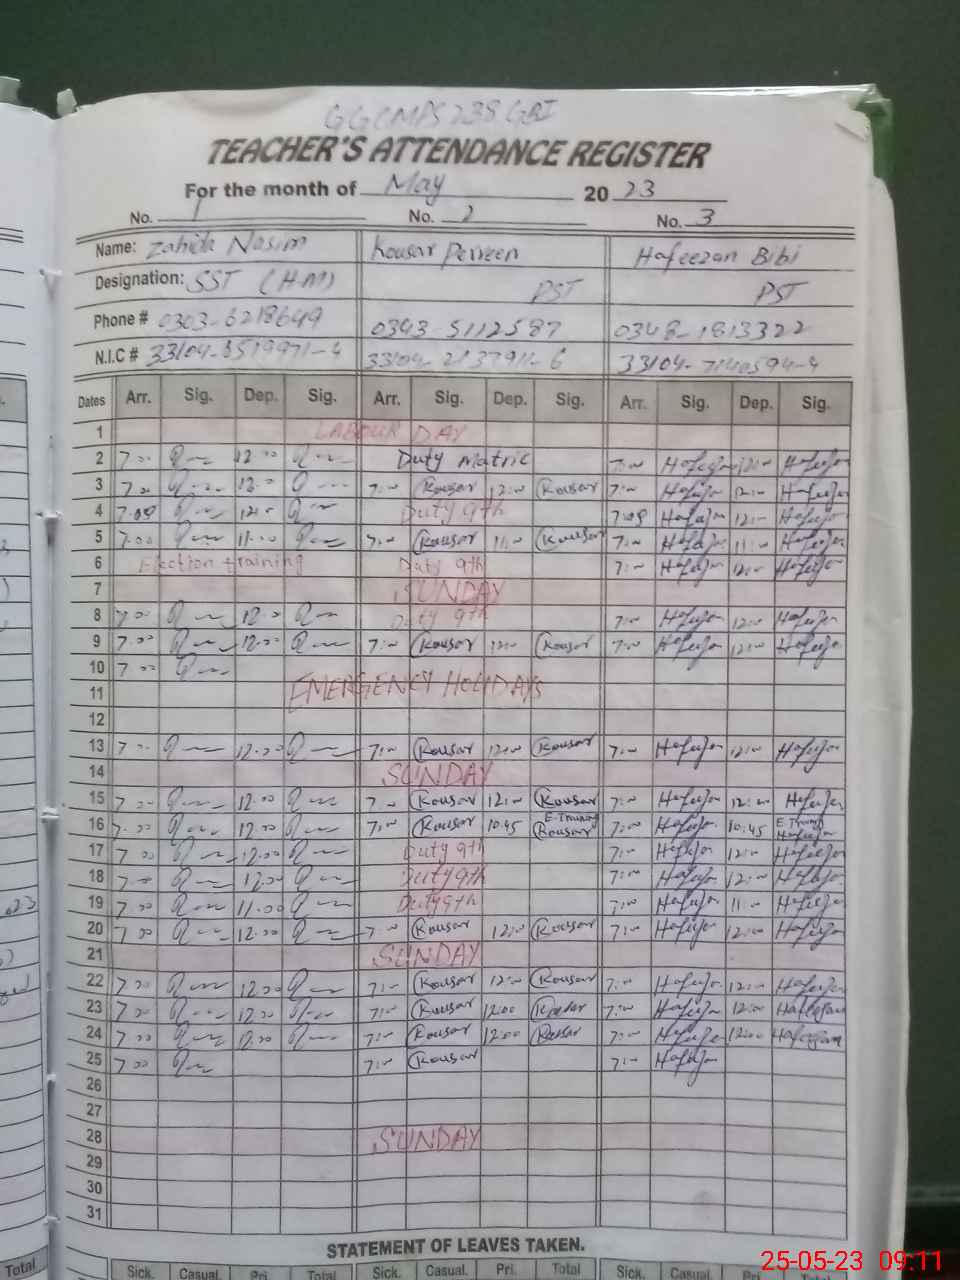 GGCMPS 238 GBI
TEACHER'S ATTENDANCE REGISTER
For the month of May 2023
No. 1 No. 2 No. 3
Name: Zahida Nasim Kousar Perveen Hafeezan Bibi
Designation: SST (H-M) PST PST
Phone # 0303-6218649 0343-5112587 0348-1813322
N.I.C # 33104-6519971-4 33104-2137911-6 33104-7140594-4
Dates Arr. Sig. Dep. Sig. Arr. Sig. Dep. Sig. Arr. Sig. Dep. Sig.
1 LABOUR DAY
2 7:00 12:00 Duty Matric 7:00 Hafeezan 12:00 Hafeezan
3 7:00 12:00 7:00 Kousar 12:00 Kousar 7:00 Hafeezan 12:00 Hafeezan
4 7:00 12:00 Duty 9th 7:00 Hafeezan 12:00 Hafeezan
5 7:00 11:00 7:00 Kousar 11:00 Kousar 7:00 Hafeezan 11:00 Hafeezan
6 Election training Duty 9th 7:00 Hafeezan 12:00 Hafeezan
7 SUNDAY
8 7:00 12:00 Duty 9th 7:00 Hafeezan 12:00 Hafeezan
9 7:00 12:00 7:00 Kousar 12:00 Kousar 7:00 Hafeezan 12:00 Hafeezan
10 7:00
11 EMERGENCY HOLIDAYS
12
13 7:00 12:00 7:00 Kousar 12:00 Kousar 7:00 Hafeezan 12:00 Hafeezan
14 SUNDAY
15 7:00 12:00 7:00 Kousar 12:00 Kousar 7:00 Hafeezan 12:00 Hafeezan
16 7:00 12:00 7:00 Kousar 10:45 E-Training Kousar 7:00 Hafeezan 10:45 E Training Hafeezan
17 7:00 12:00 Duty 9th 7:00 Hafeezan 12:00 Hafeezan
18 7:00 12:00 Duty 9th 7:00 Hafeezan 12:00 Hafeezan
19 7:00 11:00 Duty 9th 7:00 Hafeezan 11:00 Hafeezan
20 7:00 12:00 7:00 Kousar 12:00 Kousar 7:00 Hafeezan 12:00 Hafeezan
21 SUNDAY
22 7:00 12:00 7:00 Kousar 12:00 Kousar 7:00 Hafeezan 12:00 Hafeezan
23 7:00 12:00 7:00 Kousar 12:00 Kousar 7:00 Hafeezan 12:00 Hafeezan
24 7:00 12:00 7:00 Kousar 12:00 Kousar 7:00 Hafeezan 12:00 Hafeezan
25 7:00 7:00 Kousar 7:00 Hafeezan
26
27
28 SUNDAY
29
30
31
STATEMENT OF LEAVES TAKEN.
Total Sick. Casual. Pri. Total Sick. Casual. Pri. Total Sick. Casual. Pri. Total
25-05-23 09:11